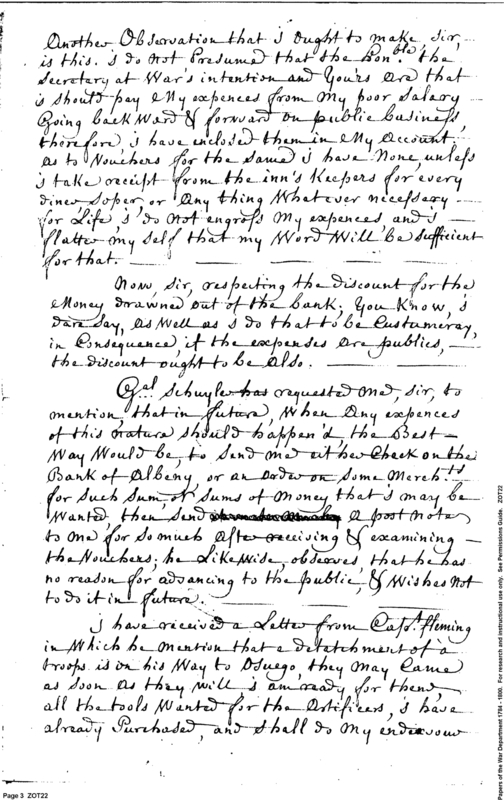 Another Observation that i ought to make, Sir,
is this. i do not Presumed that the Honble. the
Secretary at War's intention and Yours Are that
i should pay My expences from My poor Salary
Going backward & forward on public business,
therefore, i have enclosed them in My Account
as to Vouchers for the Same i have None, unless
i take receipt from the inn's Keepers for every
diner, Soper, or Any thing Whatever necessary
for Life, i do Not engross My expences, and i
flatter my Self that my Word Will be Sufficient
for that.
Now, Sir, respecting the discount for the
Money drawned out of the bank; You Know, i
dare Say, As Well as i do that to be Custumeray,
in Consequence, if the expenses Are publics,
the discount ought to be Also.
Gal. Schuyler has requested me, Sir, to
mention, that in future, When Any expences
of this Nature Should happen'd, the Best
Way Would be, to Send me either Check on the
Bank of Albeny, or an Order on Some Merchts
for Such Sum, or Sums of Money that i may be
Wanted, then Send A post Note
to me for So much After receiving & examining
the Vouchers; he Likewise, observes, that he has
no reason for advancing to the public, & Wishes Not
to do it in future.
i have received a Letter from Capt. Fleming
in Which he mention that a detatchment of
troops is on his Way to Osuego, they May Came
as Soon As they Will, i am ready for them,
all the tools Wanted for the Artificers, i have
already Purchased, and Shall do My endevour
Page 3 ZOT22
Papers of the War Department 1784 - 1800. For research and instructional use only. See Permissions Guide. ZOT22